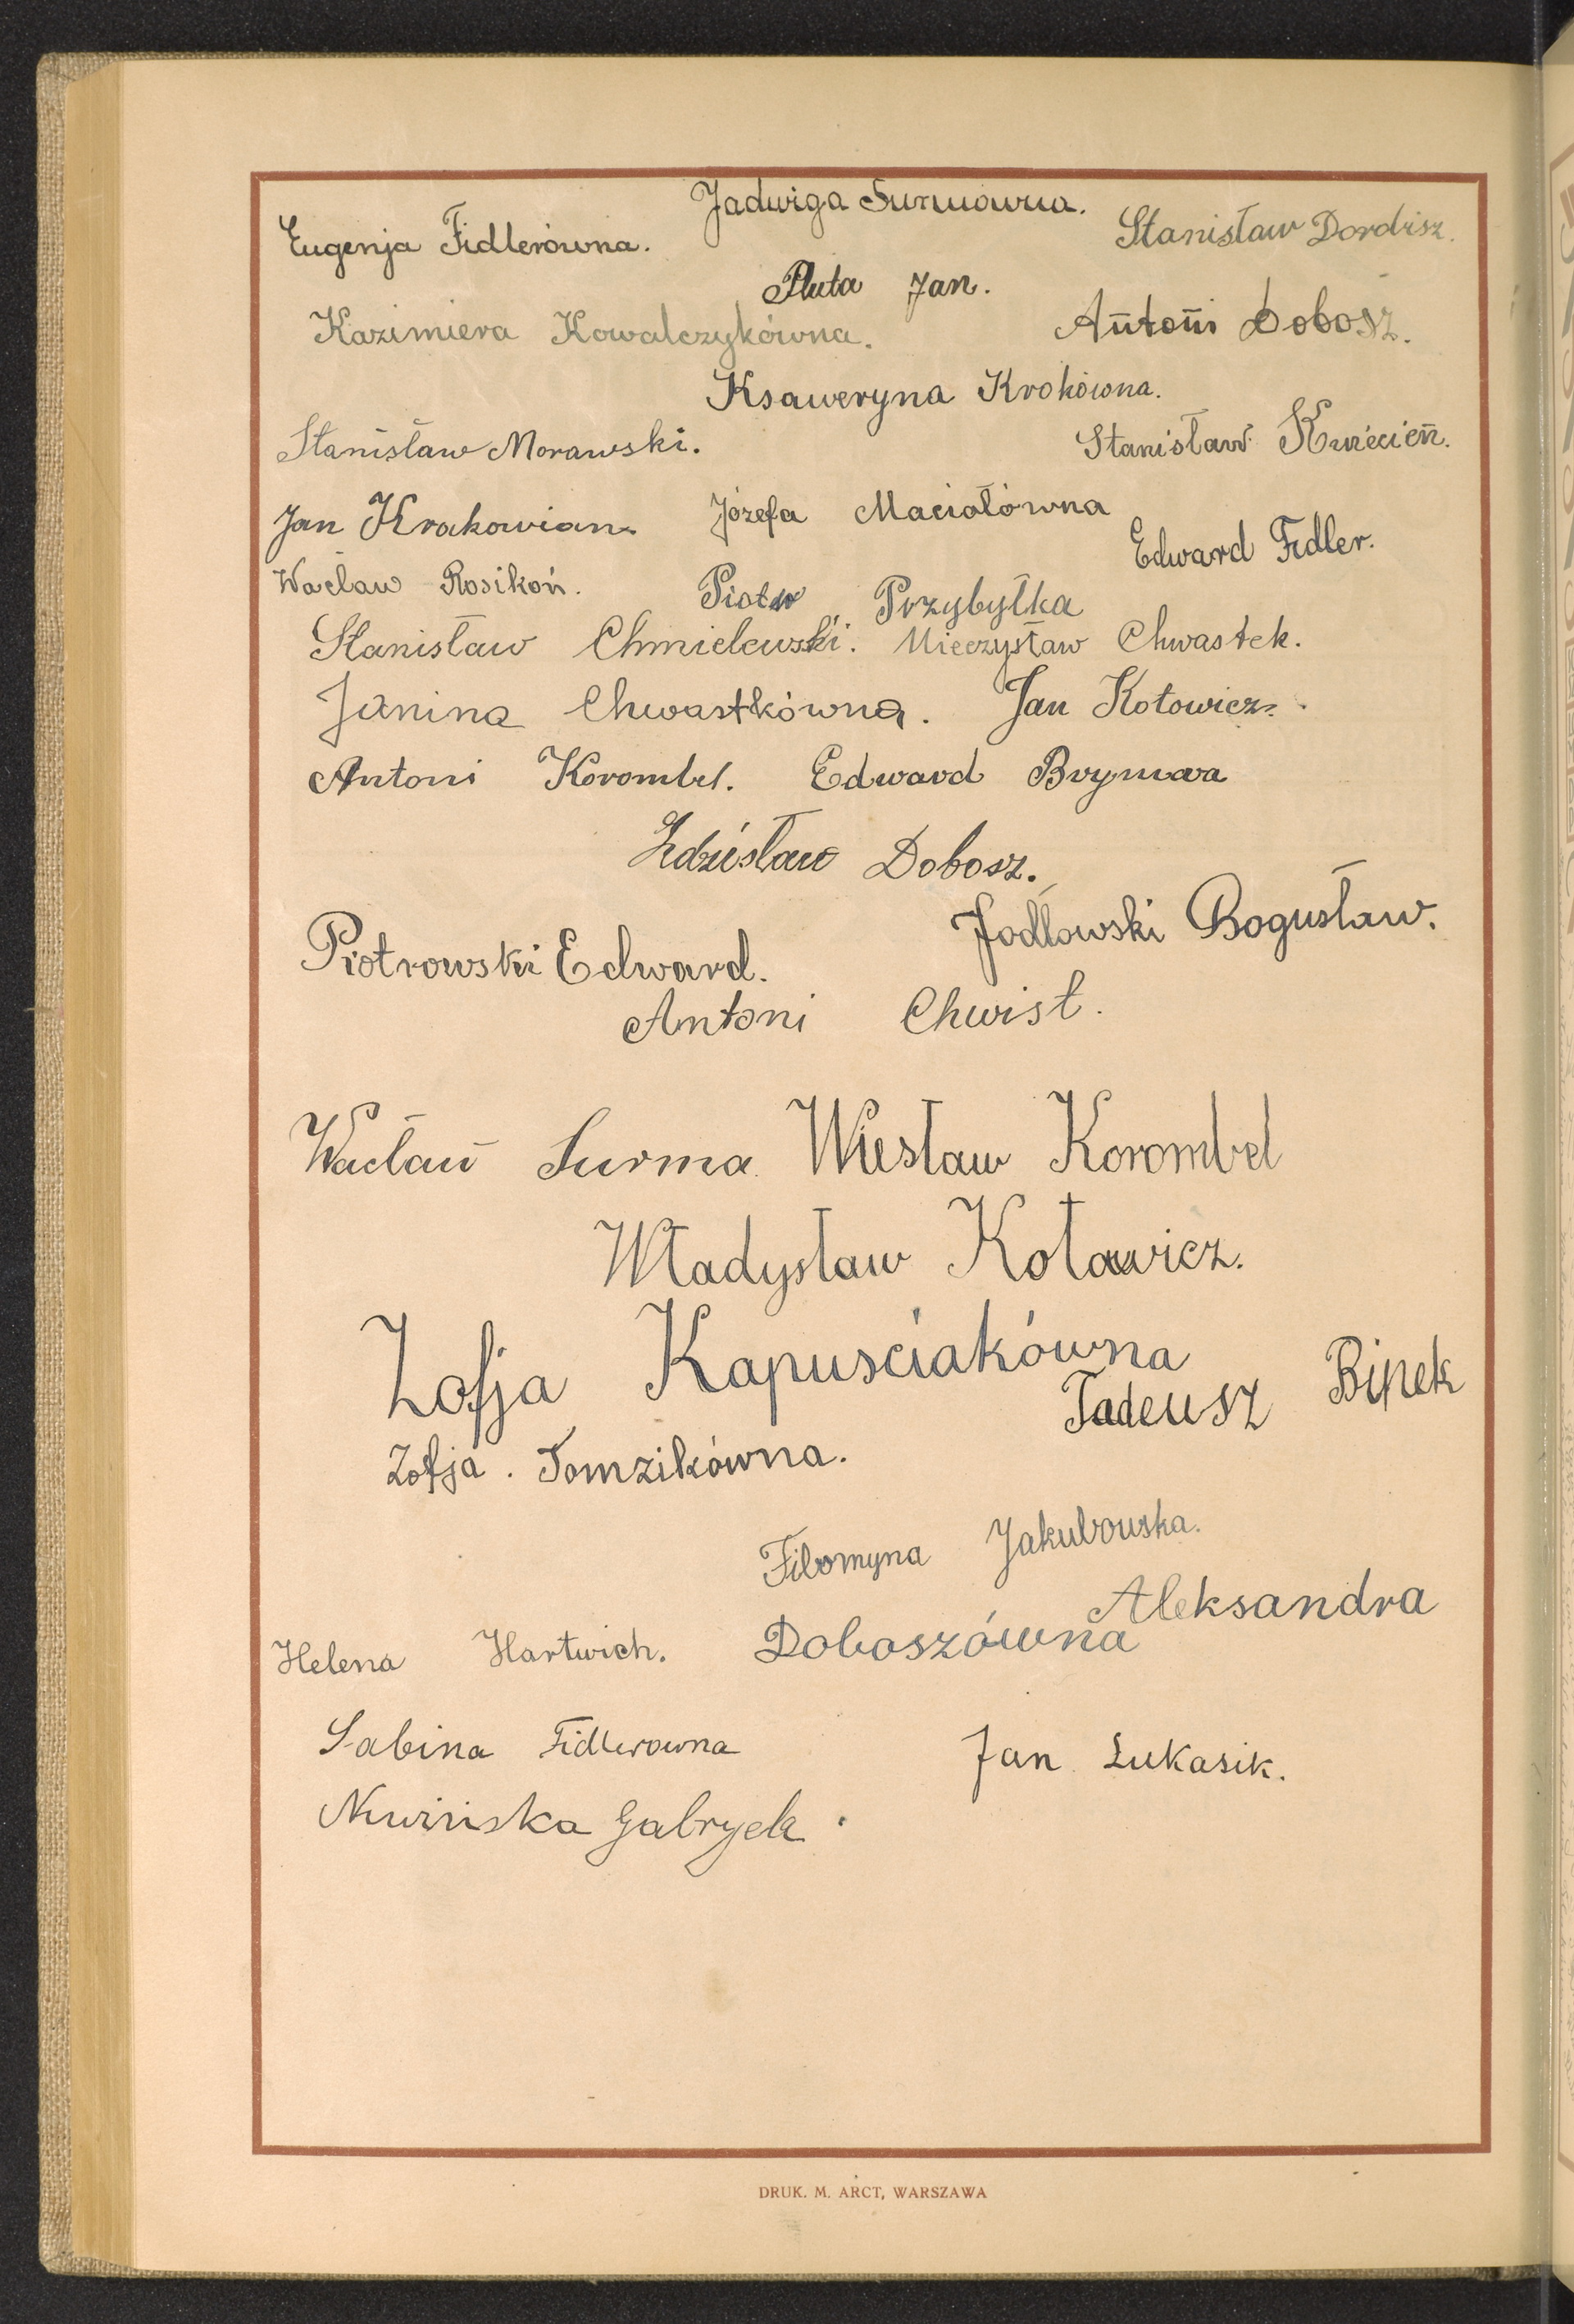 Jadwiga Surmówna.
Eugenja Fidlerówna. Stanisław Dordisz.
Pluta Jan.
Kazimiera Kowalczykówna. Antoni Dobosz.
Ksaweryna Krokówna.
Stanisław Morawski. Stanisław Kwiecień.
Jan Krakowian. Józefa Maciołówna
Edward Fidler.
Wacław Rosikoń. Piotr Przybyłka
Stanisław Chmielewski. Mieczysław Chwastek.
Janina Chwastkówna. Jan Kotowicz.
Antoni Korombel. Edward Brymora
Zdzisław Dobosz.
Jodłowski Bogusław.
Piotrowski Edward.
Antoni Chwist.
Wacław Surma. Wiesław Korombel
Władysław Kotowicz.
Zofja Kapuściakówna
Tadeusz Binek
Zofja. Tomzikówna.
Filomyna Jakubowska.
Aleksandra
Helena Hartwich. Doboszówna
Sabina Fidlerowna
Jan Łukasik.
Gabryela
DRUK. M. ARCT, WARSZAWA